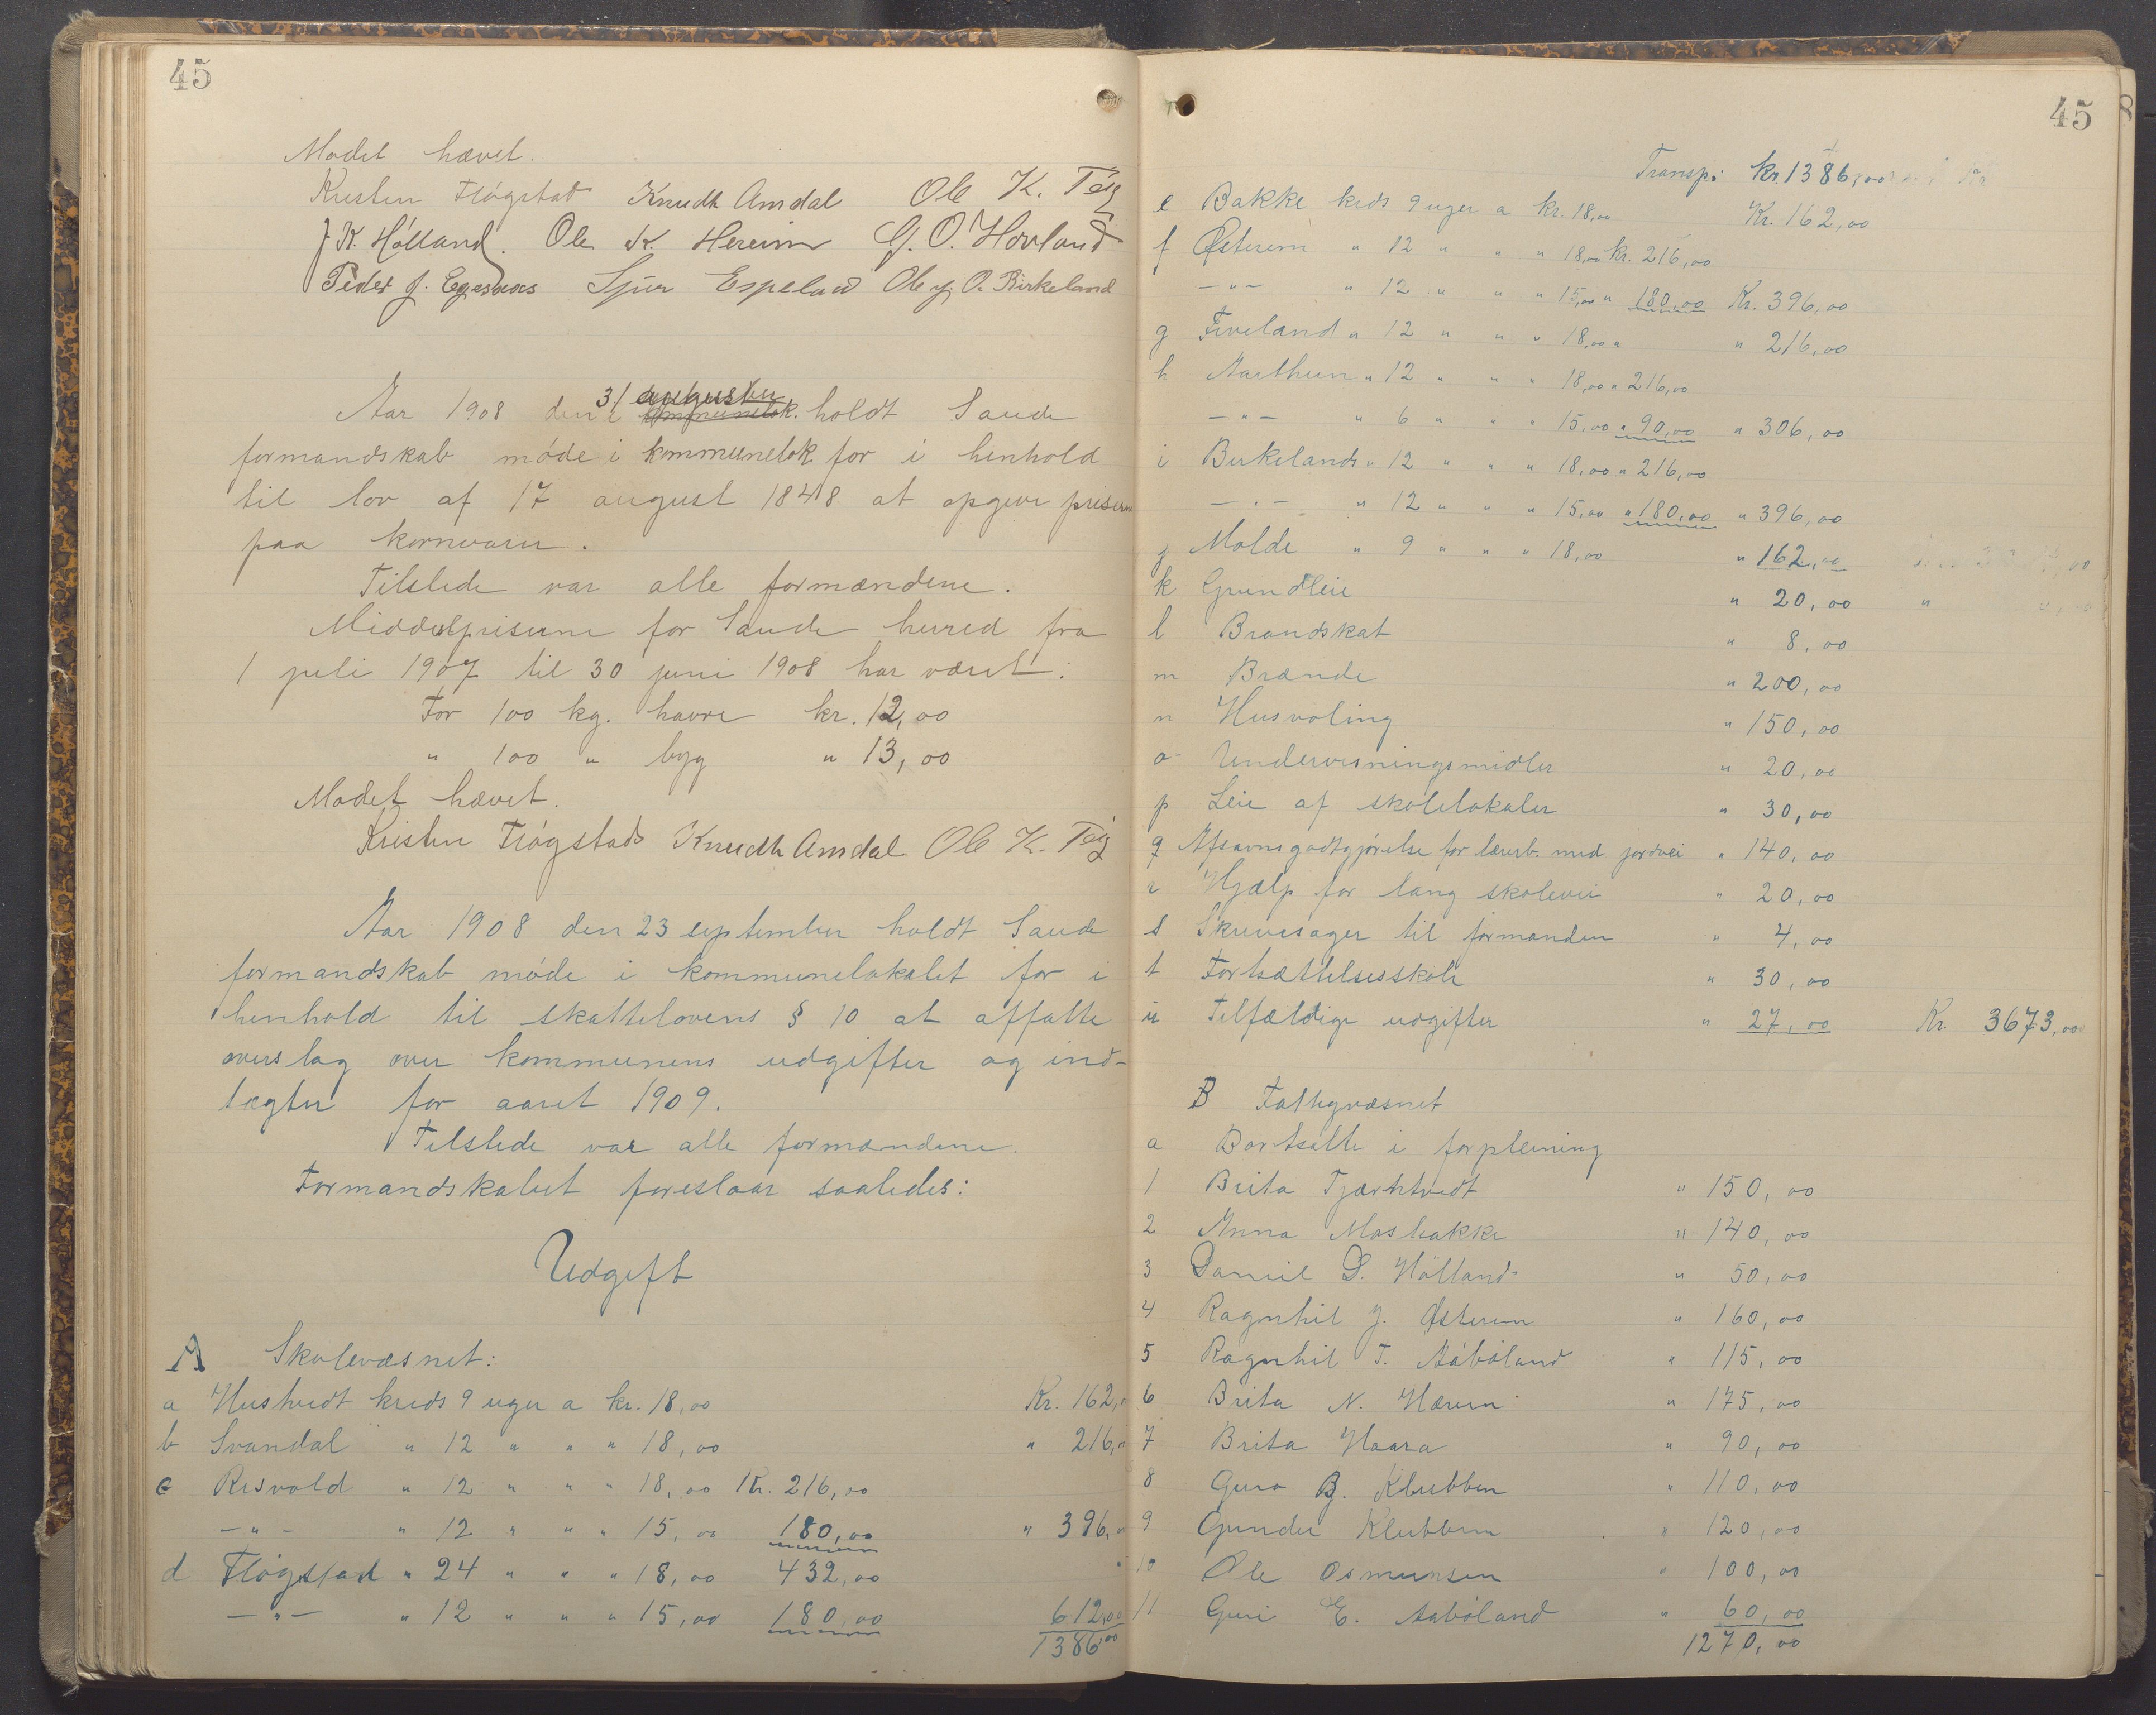 45
Mødet hævet.
Kristen Fløgstad Knudt Amdal Ole K. Teig
J. K. Hølland. Ole K. Hereim G. O. Hovland
Peder J. Egesnæs Sjur Espeland Ole J. O. Birkeland
Aar 1908 den 31 augusten kommunelok. holdt Saude
formandskab møde i kommunelok for i henhold
til lov af 17 august 1848 at opgive priserne
paa kornvarer.
Tilstede var alle formændene.
Middelpriserne for Saude herred fra
1 juli 1907 til 30 juni 1908 har været:
For 100 kg. havre kr. 12,00
" 100 " byg " 13,00
Mødet hævet.
Kristen Fløgstad Knudt Amdal Ole K. Teig
Aar 1908 den 23 september holdt Saude
formandskab møde i kommunelokalet for i
henhold til skattelovens § 10 at affatte
overslag over kommunens udgifter og ind-
tægter for aaret 1909.
Tilstede var alle formændene.
Formandskabet foreslaar saaledes:
Udgift
A Skolevæsnet:
a Hustvedt kreds 9 uger a kr. 18,00 Kr. 162,
b Svandal " 12 " " " 18,00 " 216,
c Risvold " 12 " " " 18,00 Kr. 216,00
-"- " 12 " " " 15,00 180,00 " 396,
d Fløgstad " 24 " " " 18,00 432,00
-"- " 12 " " " 15,00 180,00 612,00
1386,00
45
Transp: kr. 1386,00
e Bakke kreds 9 uger a kr. 18,00 Kr. 162,00
f Østerem " 12 " " " 18,00 kr. 216,00
-"- " 12 " " " 15,00 " 180,00 Kr. 396,00
g Fiveland " 12 " " " 18,00 " " 216,00
h Aarthun " 12 " " " 18,00 " 216,00
-"- " 6 " " " 15,00 " 90,00 " 306,00
i Birkelands " 12 " " " 18,00 " 216,00
-"- " 12 " " " 15,00 " 180,00 " 396,00
j Molde " 9 " " " 18,00 " 162,00
k Grundleie " 20,00
l Brandskat " 8,00
m Brænde " 200,00
n Husvoling " 150,00
o Undervisningsmidler " 20,00
p Leie af skolelokaler " 30,00
q Afsavnsgodtgjørelse for lærerb. med jordvei " 140,00
r Hjælp for lang skolevei " 20,00
s Skrivesager til formanden " 4,00
t Fortsættelsesskole " 30,00
u Tilfældige udgifter " 27,00 Kr. 3673,00
B Fattigvæsnet
a Bortsatte i forpleining
1 Brita Tjærhtvedt " 150,00
2 Anna Mosbakke " 140,00
3 Daniel D. Hølland " 50,00
4 Ragnhil J. Østerem " 160,00
5 Ragnhil T. Aabøland " 115,00
6 Brita N. Hærem " 175,00
7 Brita Haara " 90,00
8 Guro B. Klubben " 110,00
9 Gunder Klubben " 120,00
10 Ole Osmunsen " 100,00
11 Guri E. Aabøland " 60,00
1270,00